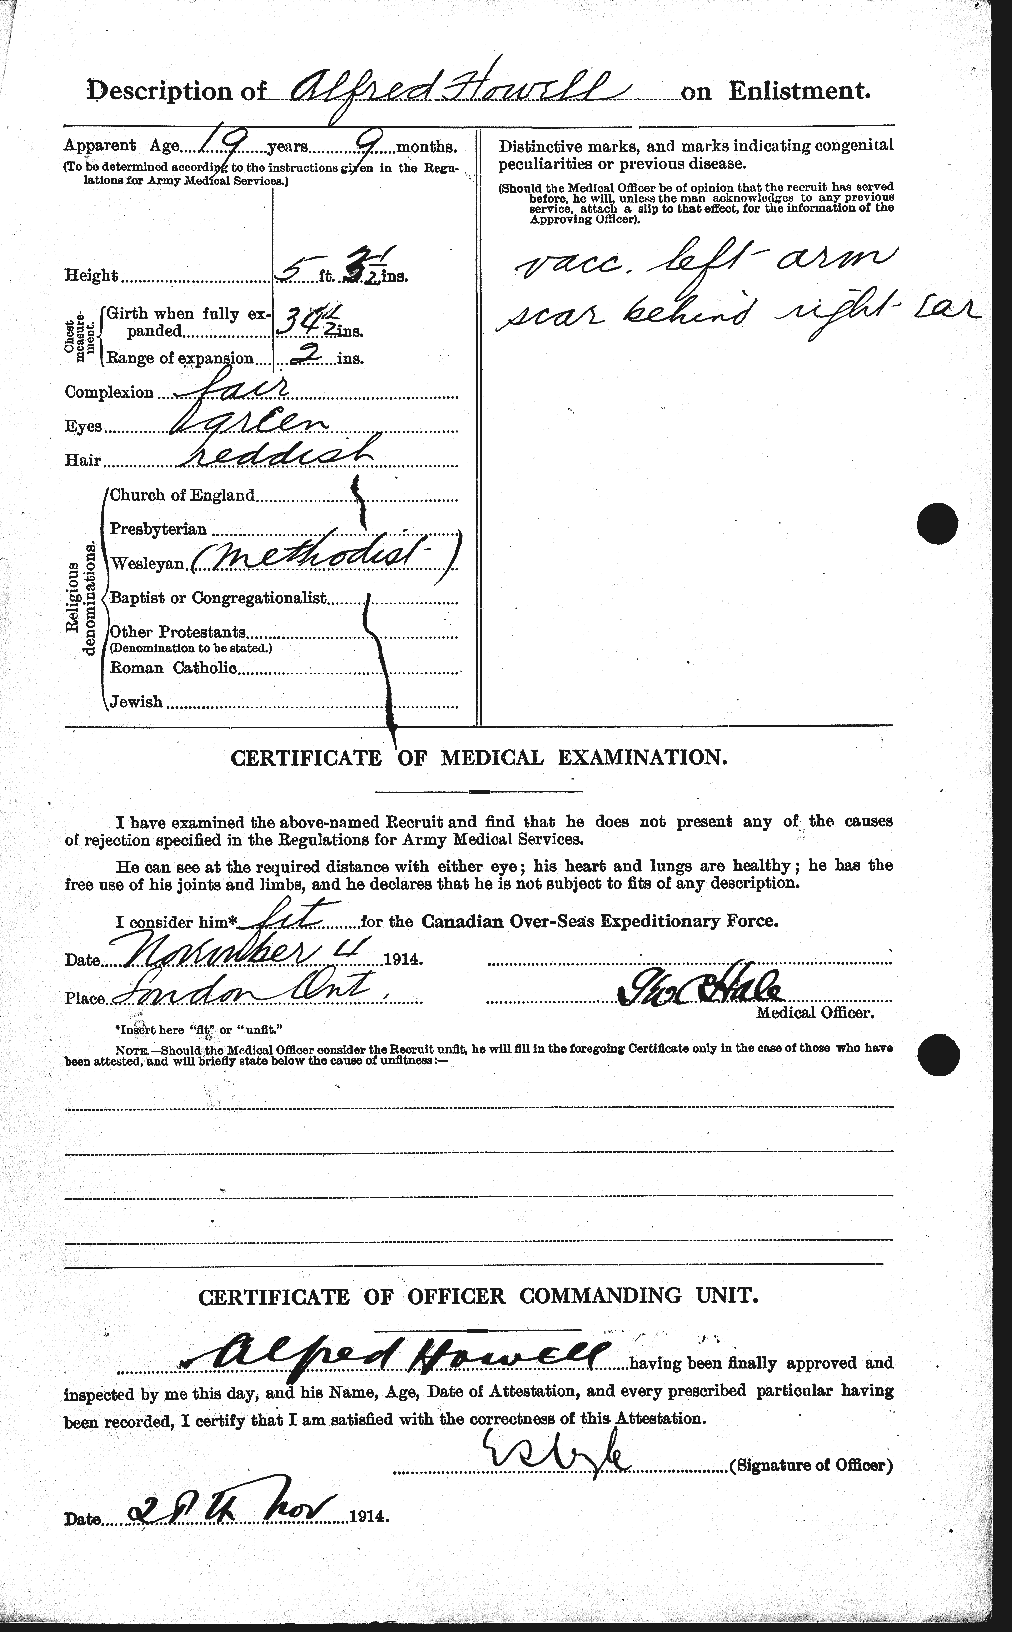 Description of Alfred Howell on Enlistment.
Apparent Age 19 years 9 months.
(To be determined according to the instructions given in the Regu-
lations for Army Medical Services.)
Height 5 ft. ins.
Chest measure-ment.
Girth when fully ex-
panded 34 1/2 ins.
Range of expansion 2 ins.
Complexion fair
Eyes green
Hair reddish
Religious denominations.
Church of England
Presbyterian
Wesleyan (Methodist)
Baptist or Congregationalist
Other Protestants
(Denomination to be stated.)
Roman Catholic
Jewish
Distinctive marks, and marks indicating congenital
peculiarities or previous disease.
(Should the Medical Officer be of opinion that the recruit has served
before, he will, unless the man acknowledges to any previous
service, attach a slip to that effect, for the information of the
Approving Officer).
vacc. left arm
scar behind right ear
CERTIFICATE OF MEDICAL EXAMINATION.
I have examined the above-named Recruit and find that he does not present any of the causes
of rejection specified in the Regulations for Army Medical Services.
He can see at the required distance with either eye; his heart and lungs are healthy; he has the
free use of his joints and limbs, and he declares that he is not subject to fits of any description.
I consider him* fit for the Canadian Over-Seas Expeditionary Force.
Date November 4 1914.
Place London Ont.
Hale
Medical Officer.
*Insert here "fit" or "unfit."
NOTE.—Should the Medical Officer consider the Recruit unfit, he will fill in the foregoing Certificate only in the case of those who have
been attested, and will briefly state below the cause of unfitness:—
CERTIFICATE OF OFFICER COMMANDING UNIT.
Alfred Howell having been finally approved and
inspected by me this day, and his Name, Age, Date of Attestation, and every prescribed particular having
been recorded, I certify that I am satisfied with the correctness of this Attestation.
(Signature of Officer)
Date 28th Nov 1914.